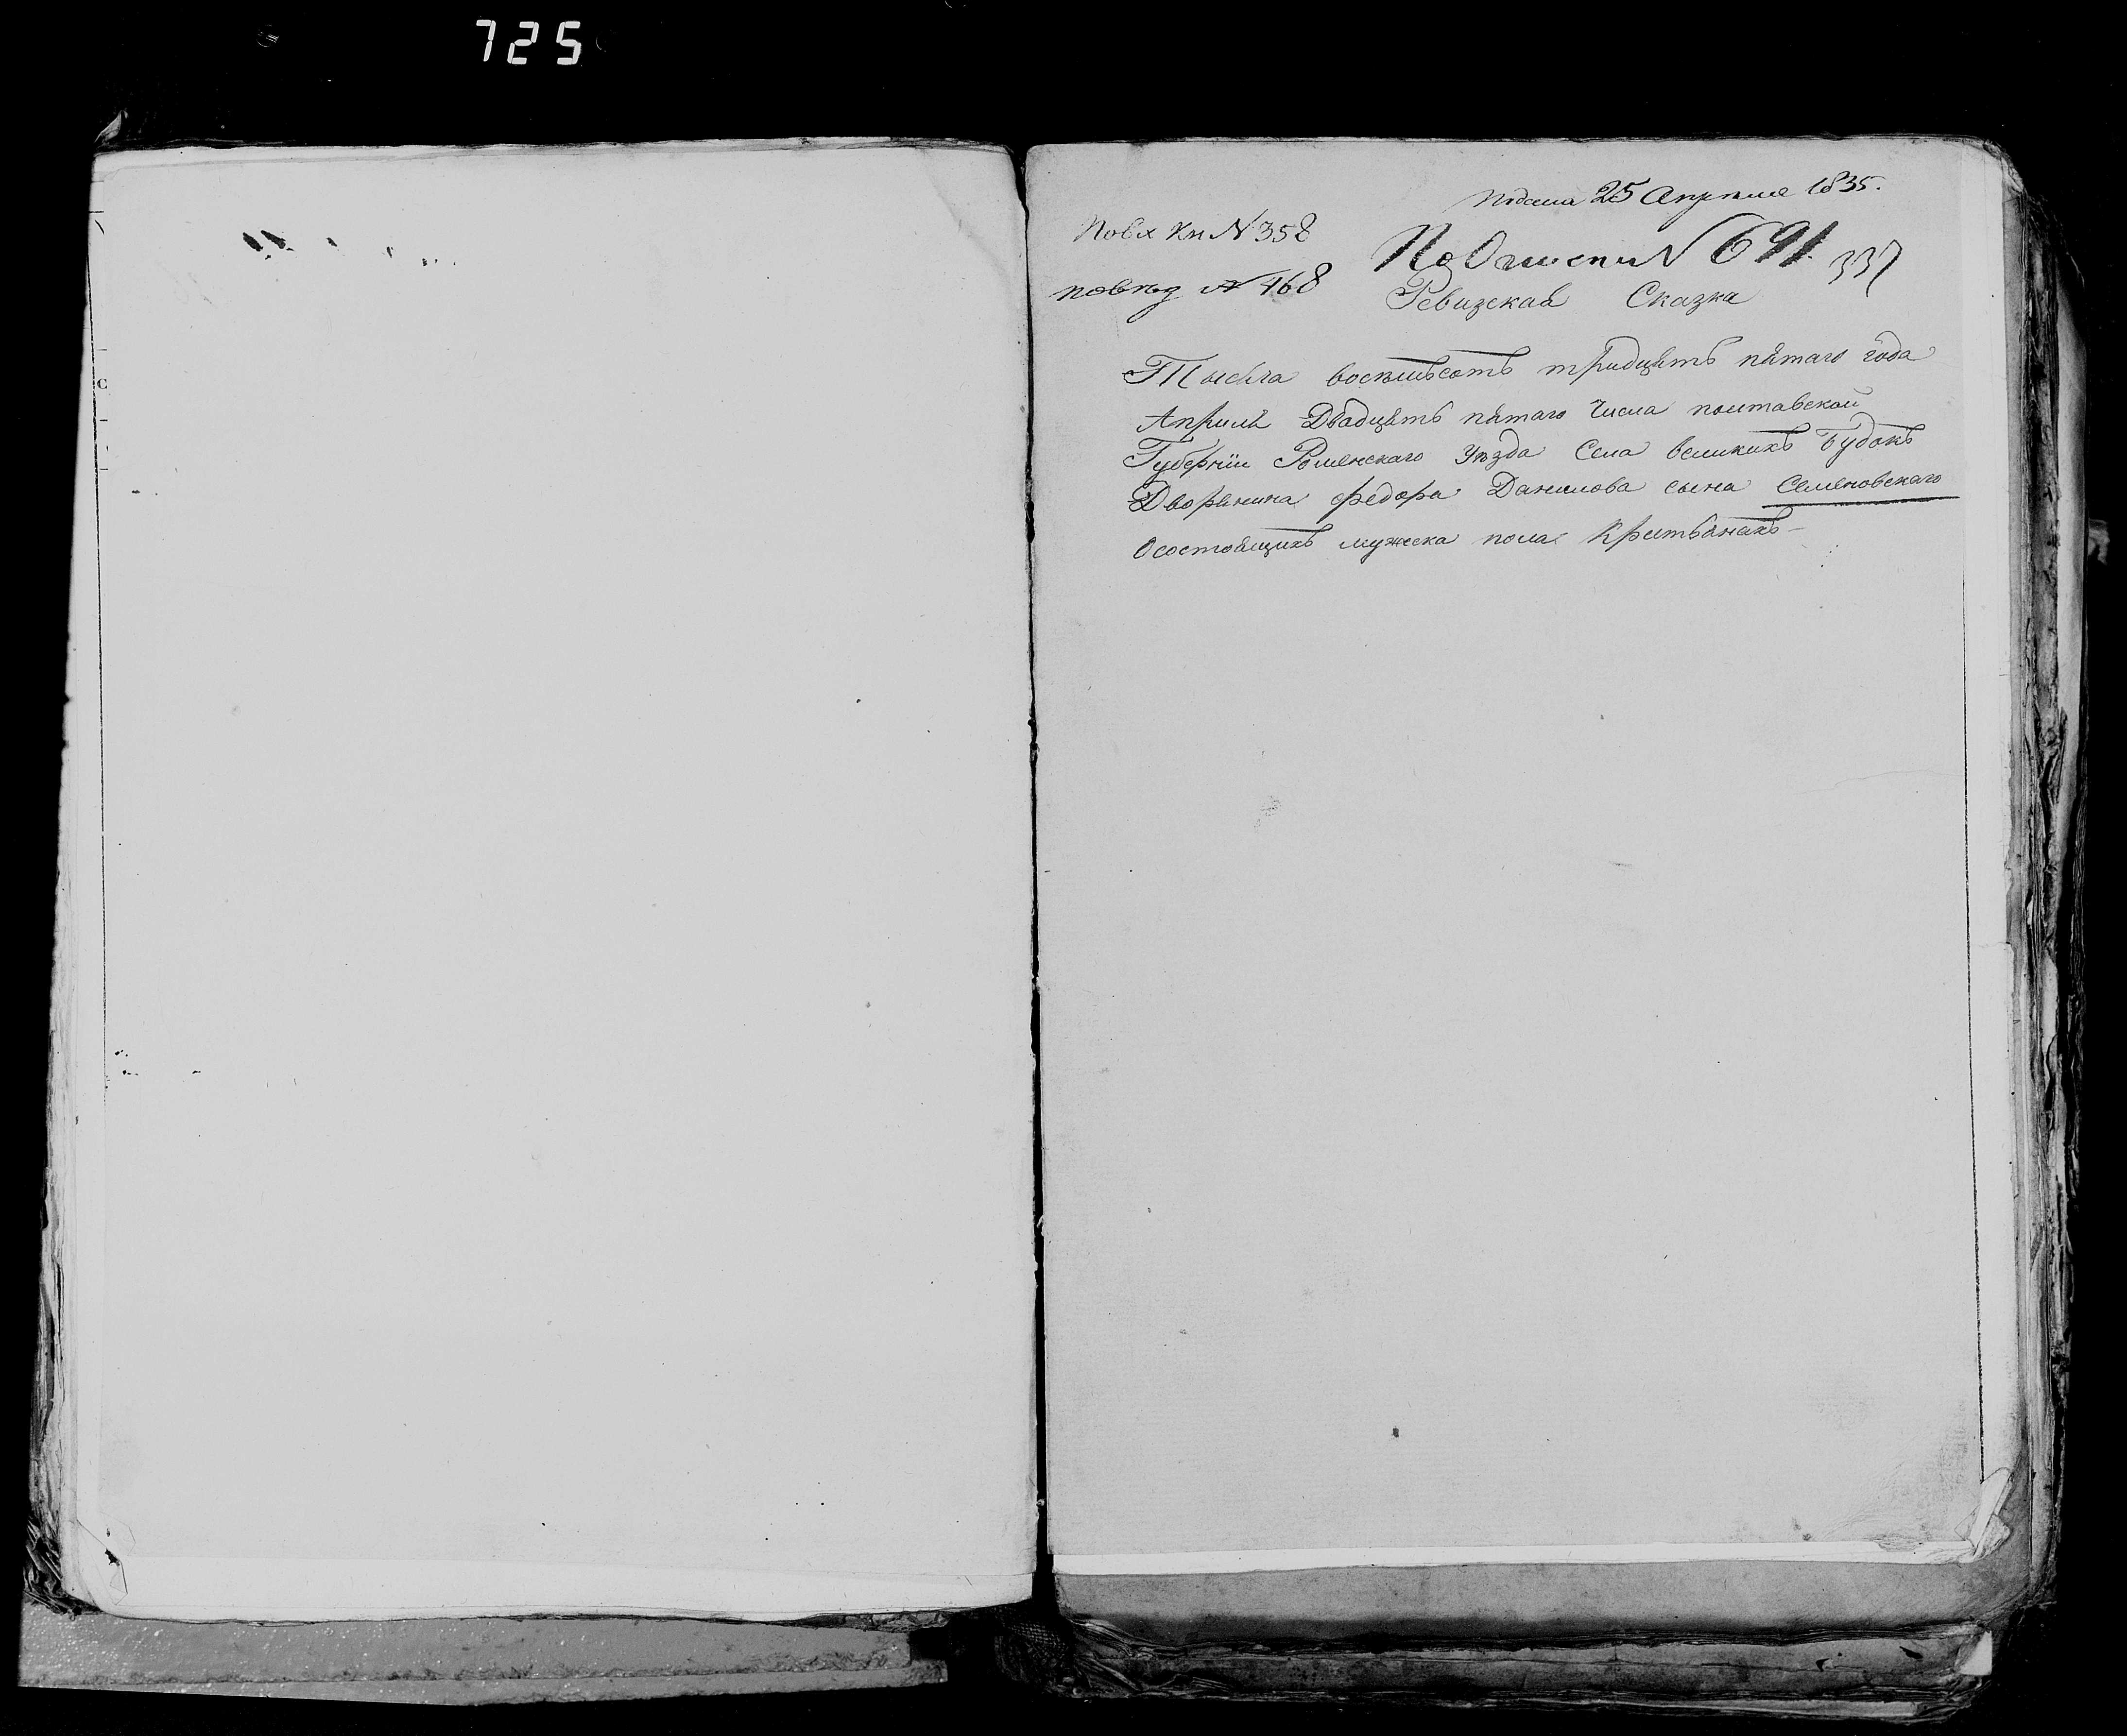 725
Подана 25 Апреля 1835.
По вх Кн № 358
По Описи № 691.
337
по вѣд № 468
Ревизская Сказка
Тысяча восемьсотъ тридцать пятаго года
Апреля Двадцать пятаго Числа полтавской
Губерніи Роменскаго Уѣзда Села великихъ Будокъ
Дворянина Федора Данилова сына Семяновскаго
О состоящихъ мужеска пола Крестьянахъ —